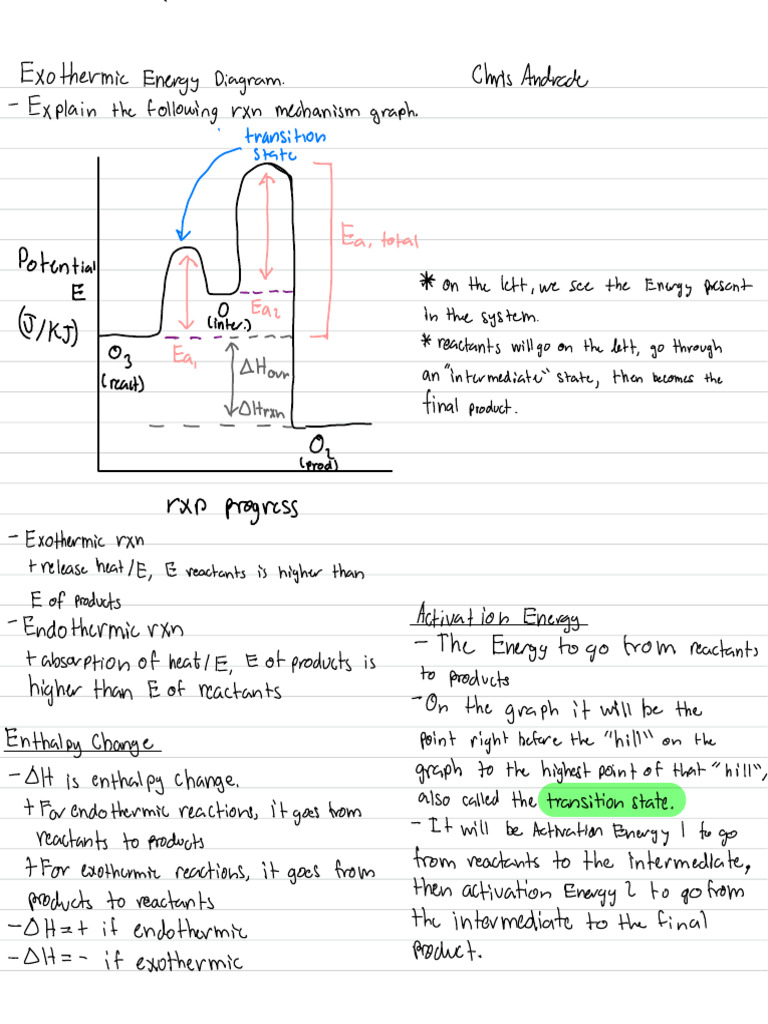 Exothermic Energy Diagram.
Chris Andrade
- Explain the following rxn mechanism graph.
transition
state
Ea, total
Potential
E
(J/KJ)
O
(inter.)
Ea2
O3
(react)
Ea1
ΔHovr
ΔHrxn
O2
(prod)
rxn progress
* on the left, we see the Energy present
in the system.
* reactants will go on the left, go through
an "intermediate" state, then becomes the
final product.
- Exothermic rxn
+ release heat/E, E reactants is higher than
E of products
- Endothermic rxn
+ absorption of heat/E, E of products is
higher than E of reactants
Enthalpy Change
- ΔH is enthalpy change.
+ For endothermic reactions, it goes from
reactants to products
+ For exothermic reactions, it goes from
products to reactants
- ΔH = + if endothermic
- ΔH = - if exothermic
Activation Energy
- The Energy to go from reactants
to products
- On the graph it will be the
point right before the "hill" on the
graph to the highest point of that "hill",
also called the transition state.
- It will be Activation Energy 1 to go
from reactants to the intermediate,
then activation Energy 2 to go from
the intermediate to the final
product.